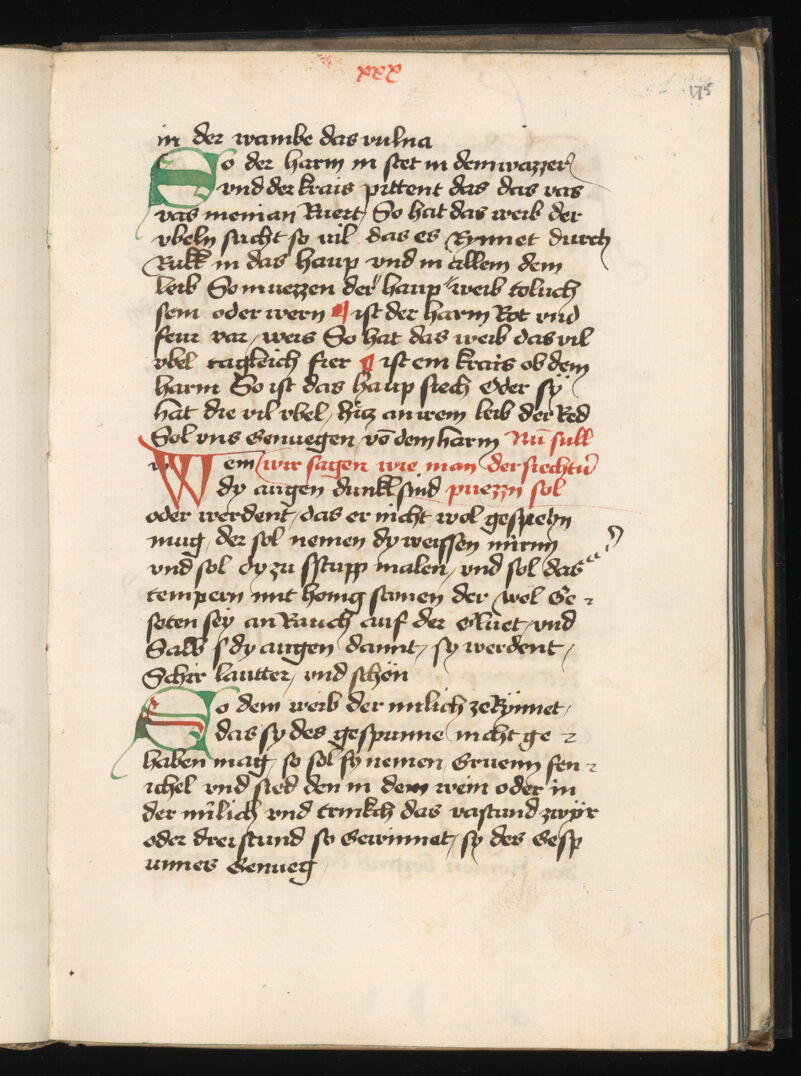 xxx
175
in der wambe das vulna
So der harm in stet in dem wazzer
vnd der krais pittent das das vas
vas menian Ruert So hat das weib der
vbeln sucht so vil das es Rynnet durch
Rukk in das haup vnd in allem dem
leib So muezzen der haup weib toluch
sein oder wern ¶ ist der harm Rot vnd
feur var weis So hat das weib das vil
vbel tagleich fier ¶ ist ein krais ob dem
harm So ist das haup siech Oder sy
hat die vil vbel hicz an irem leib der Red
Sol vns Genuegen vō dem harm Nu sull
Wem wir sagen wie man der siechtū
dy augen dunkl sind puezzn sol
oder werdent das er nicht wol gesehn
mug der sol nemen dy weissen mirrn
vnd sol dy zu stupp malen vnd sol das
tempern mit honig samen der wol Ge
soten sey an Rauch auf der Gluet vnd
Salb s dy augen damit sy werdent
Schir lautter vnd schön
So dem weib der milich zeRynnet
das sy des gespunne nicht ge
haben mag so sol sy nemen Gruenn fen
ichel vnd sied den in dem wein oder in
der milich vnd trinkch das vastund zwir
oder drei stund so Gewinnet sy des Gesp
unnes Genueg